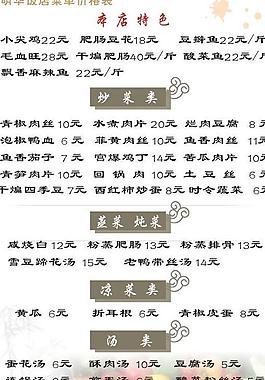 明华饭店菜单价格表
本店特色
小尖鸡22元 肥肠豆花18元 豆瓣鱼22元/斤
毛血旺28元 干煸肥肠40元/斤 酸菜鱼22元/斤
飘香麻辣鱼 22元/斤
炒菜类
青椒肉丝 10元 水煮肉片 20元 烂肉豆腐 8元
泡椒鸭血 6元 韭黄肉丝 10元 鱼香肉丝 11元
鱼香茄子 7元 宫爆鸡丁 14元 苦瓜肉片 10元
青笋肉片 10元 回锅肉 10元 土豆丝 6元
干煸四季豆 7元 西红柿炒蛋 8元 时令蔬菜 6元
蒸菜 炖菜
咸烧白 12元 粉蒸肥肠 13元 粉蒸排骨 13元
雪豆蹄花汤 15元 老鸭带丝汤 14元
凉菜类
黄瓜 6元 折耳根 6元 青椒皮蛋 8元
汤类
蛋花汤 6元 酥肉汤 10元 豆腐汤 5元